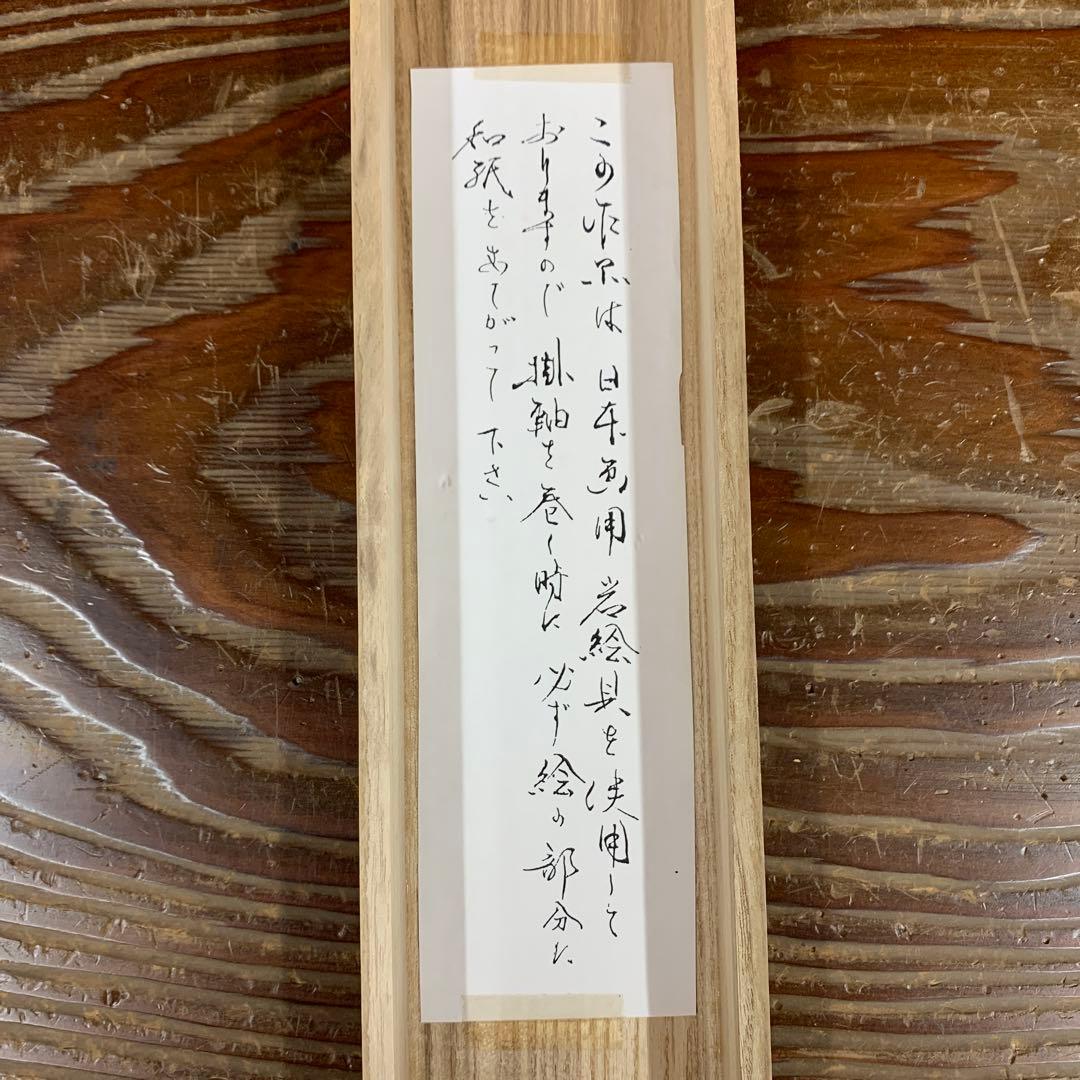 この作品は日本画用岩絵具を使用して
おりますので掛軸を巻く時に必ず絵の部分に
和紙をあてがって下さい